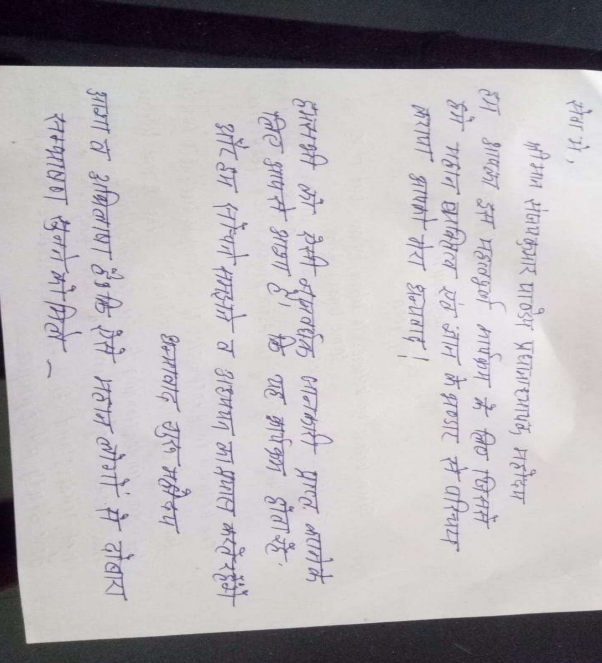 सेवा में,
श्रीमान संजयकुमार पाण्डेय प्रधानाध्यापक, महोदय
हम आपका इस महत्वपूर्ण कार्यक्रम के लिए जिसमें
हमें महान व्यक्तित्व एवं ज्ञान के भण्डार से परिचय
कराया आपको मेरा धन्यवाद।
हमें ऐसी जानकारी प्राप्त कराने के
लिए आपसे आशा है, कि यह कार्यक्रम होता रहे.
और हम व का प्रयास करते रहेंगे
धन्यवाद महोदय
आशा व अभिलाषा है कि ऐसे महान लोगों से दोबारा
सुनने को मिले –